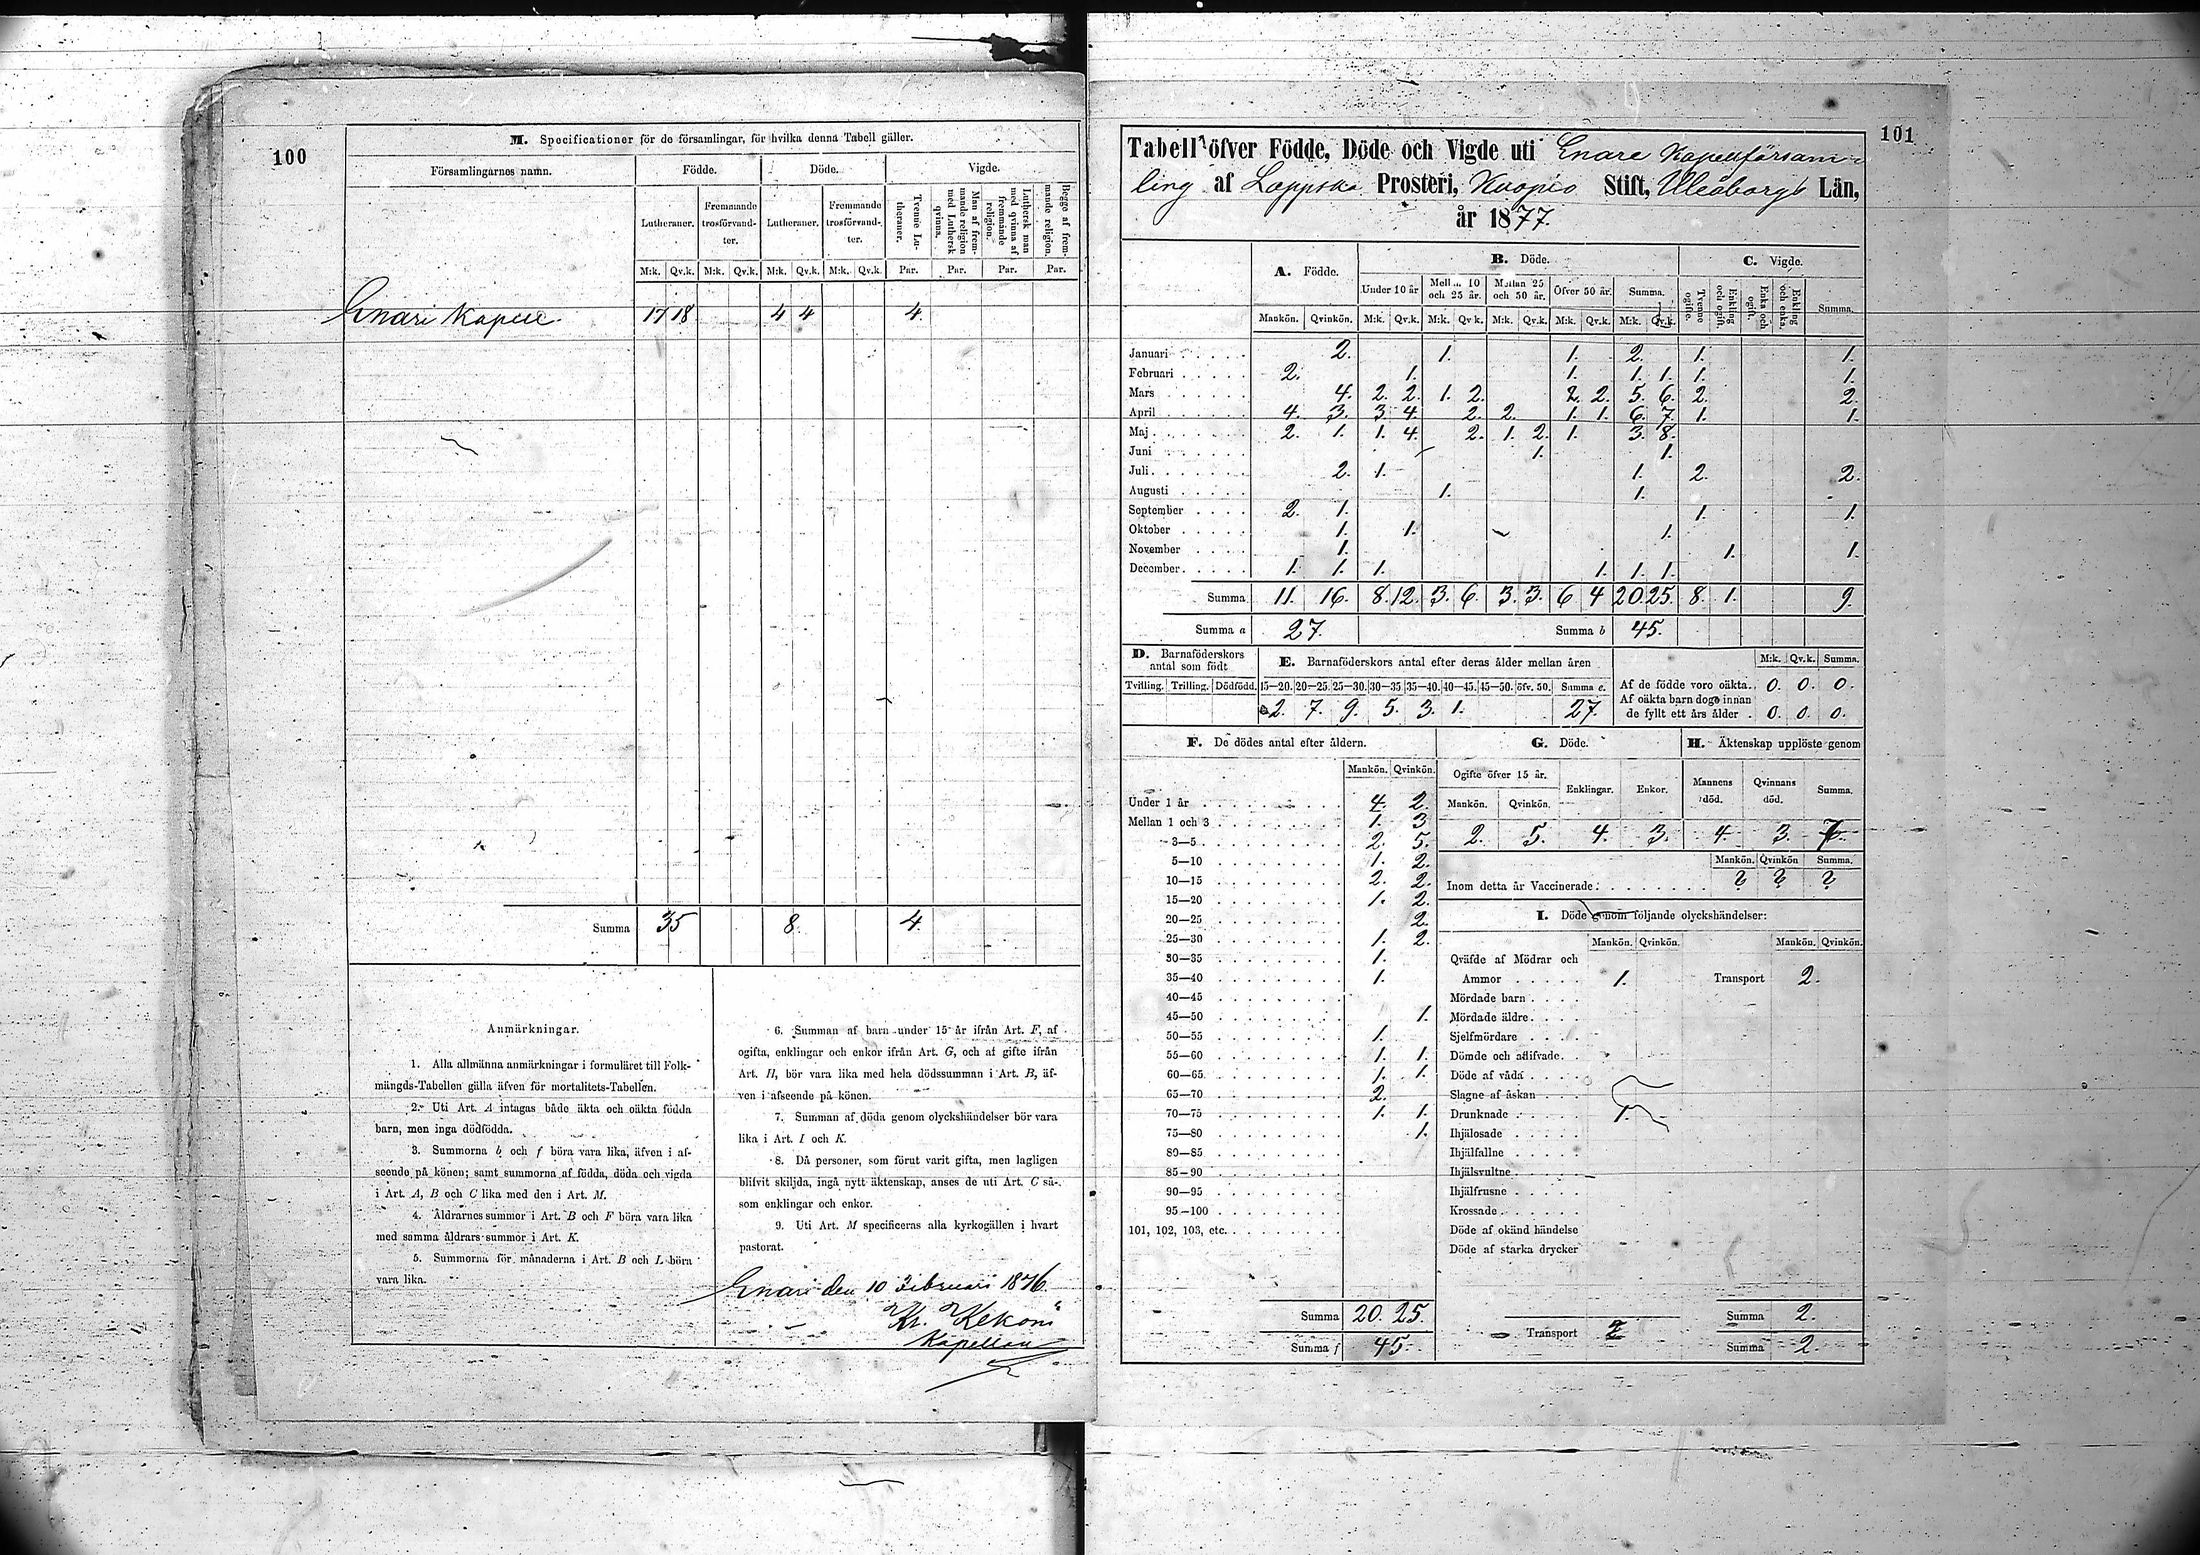 100
M. Specificationer för de församlingar, för hvilka denna Tabell gäller.
Församlingarnes namn. Födde. Döde. Vigde.
Lutheraner. Fremmande trosförvandter. Lutheraner. Fremmande trosförvandter. Tvenne Lutheraner. Man af fremmande religion med Luthersk qvinna. Luthersk man med qvinna af fremmande religion. Begge af fremmande religion.
M:k. Qv.k. M:k. Qv.k. M:k. Qv.k. M:k. Qv.k. Par. Par. Par. Par.
Enari Kapell. 17 18 4 4 4.
Summa 35 8. 4.
Anmärkningar.
1. Alla allmänna anmärkningar i formuläret till Folk-
mängds-Tabellen gälla äfven för mortalitets-Tabellen.
2. Uti Art. A intagas både äkta och oäkta födda
barn, men inga dödfödda.
3. Summorna b och f böra vara lika, äfven i af-
seende på könen; samt summorna af födda, döda och vigda
i Art. A, B och C lika med den i Art. M.
4. Åldrarnes summor i Art. B och F böra vara lika
med samma åldrars summor i Art. K.
5. Summorna för månaderna i Art. B och L böra
vara lika.
6. Summan af barn under 15 år ifrån Art. F, af
ogifta, enklingar och enkor ifrån Art. G, och af gifte ifrån
Art. H, bör vara lika med hela dödssumman i Art. B, äf-
ven i afseende på könen.
7. Summan af döda genom olyckshändelser bör vara
lika i Art. I och K.
8. Då personer, som förut varit gifta, men lagligen
blifvit skiljda, ingå nytt äktenskap, anses de uti Art. C så-
som enklingar och enkor.
9. Uti Art. M specificeras alla kyrkogällen i hvart
pastorat.
Enari den 10 Februari 1876.
Kapellan
101
Tabell öfver Födde, Döde och Vigde uti Enare Kapellförsam-
ling af Lappska Prosteri, Kuopio Stift, Uleåborgs Län,
år 1877.
A. Födde. B. Döde. C. Vigde.
Under 10 år Mellan 10 och 25 år. Mellan 25 och 50 år. Öfver 50 år. Summa. Tvenne ogifte. Enkling och ogift. Enka och ogift. Enkling och enka. Summa.
Mankön. Qvinkön. M:k. Qv.k. M:k. Qv.k. M:k. Qv.k. M:k. Qv.k. M:k. Qv.k.
Januari 2. 1. 1. 2. 1. 1.
Februari 2. 1. 1. 1. 1. 1. 1.
Mars 4. 2. 2. 1. 2. 2. 2. 5. 6. 2. 2.
April 4. 3. 3. 4. 2. 2. 1. 1. 6. 7. 1. 1.
Maj 2. 1. 1. 4. 2. 1. 2. 1. 3. 8.
Juni 1. 1.
Juli 2. 1. 1. 2. 2.
Augusti 1. 1.
September 2. 1. 1. 1.
Oktober 1. 1. 1.
November 1. 1. 1.
December 1. 1. 1. 1. 1. 1.
Summa 11. 16. 8. 12. 3. 6. 3. 3. 6 4 20. 25. 8. 1. 9.
Summa a 27. Summa b 45.
D. Barnaföderskors antal som födt
Tvilling. Trilling. Dödfödd.
E. Barnaföderskors antal efter deras ålder mellan åren
15—20. 20—25. 25—30. 30—35 35—40. 40—45. 45—50. öfv. 50. Summa e.
2. 7. 9. 5. 3. 1. 27.
M:k. Qv.k. Summa.
Af de födde voro oäkta. 0. 0. 0.
Af oäkta barn dogo innan
de fyllt ett års ålder 0. 0. 0.
F. De dödes antal efter åldern.
Mankön. Qvinkön.
Under 1 år 4. 2.
Mellan 1 och 3 1. 3
3—5 2. 5.
5—10 1. 2.
10—15 2. 2.
15—20 1. 2.
20—25 2.
25—30 1. 2.
30—35 1.
35—40 1.
40—45
45—50 1.
50—55 1.
55—60 1. 1.
60—65 1. 1.
65—70 2.
70—75 1. 1.
75—80 1.
80—85
85—90
90—95
95—100
101, 102, 103, etc.
Summa 20. 25.
Summa f 45.
G. Döde.
Ogifte öfver 15 år. Enklingar. Enkor.
Mankön. Qvinkön.
2. 5. 4. 3.
H. Äktenskap upplöste genom
Mannens död. Qvinnans död. Summa.
4. 3. 7.
Mankön. Qvinkön Summa.
Inom detta år Vaccinerade: ? ? ?
I. Döde genom följande olyckshändelser:
Mankön. Qvinkön. Mankön. Qvinkön.
Qväfde af Mödrar och
Ammor 1. Transport 2.
Mördade barn
Mördade äldre
Sjelfmördare
Dömde och aflifvade
Döde af våda
Slagne af åskan
Drunknade 1.
Ihjälosade
Ihjälfallne
Ihjälsvultne
Ihjälfrusne
Krossade
Döde af okänd händelse
Döde af starka drycker
Transport 2 Summa 2.
Summa 2.